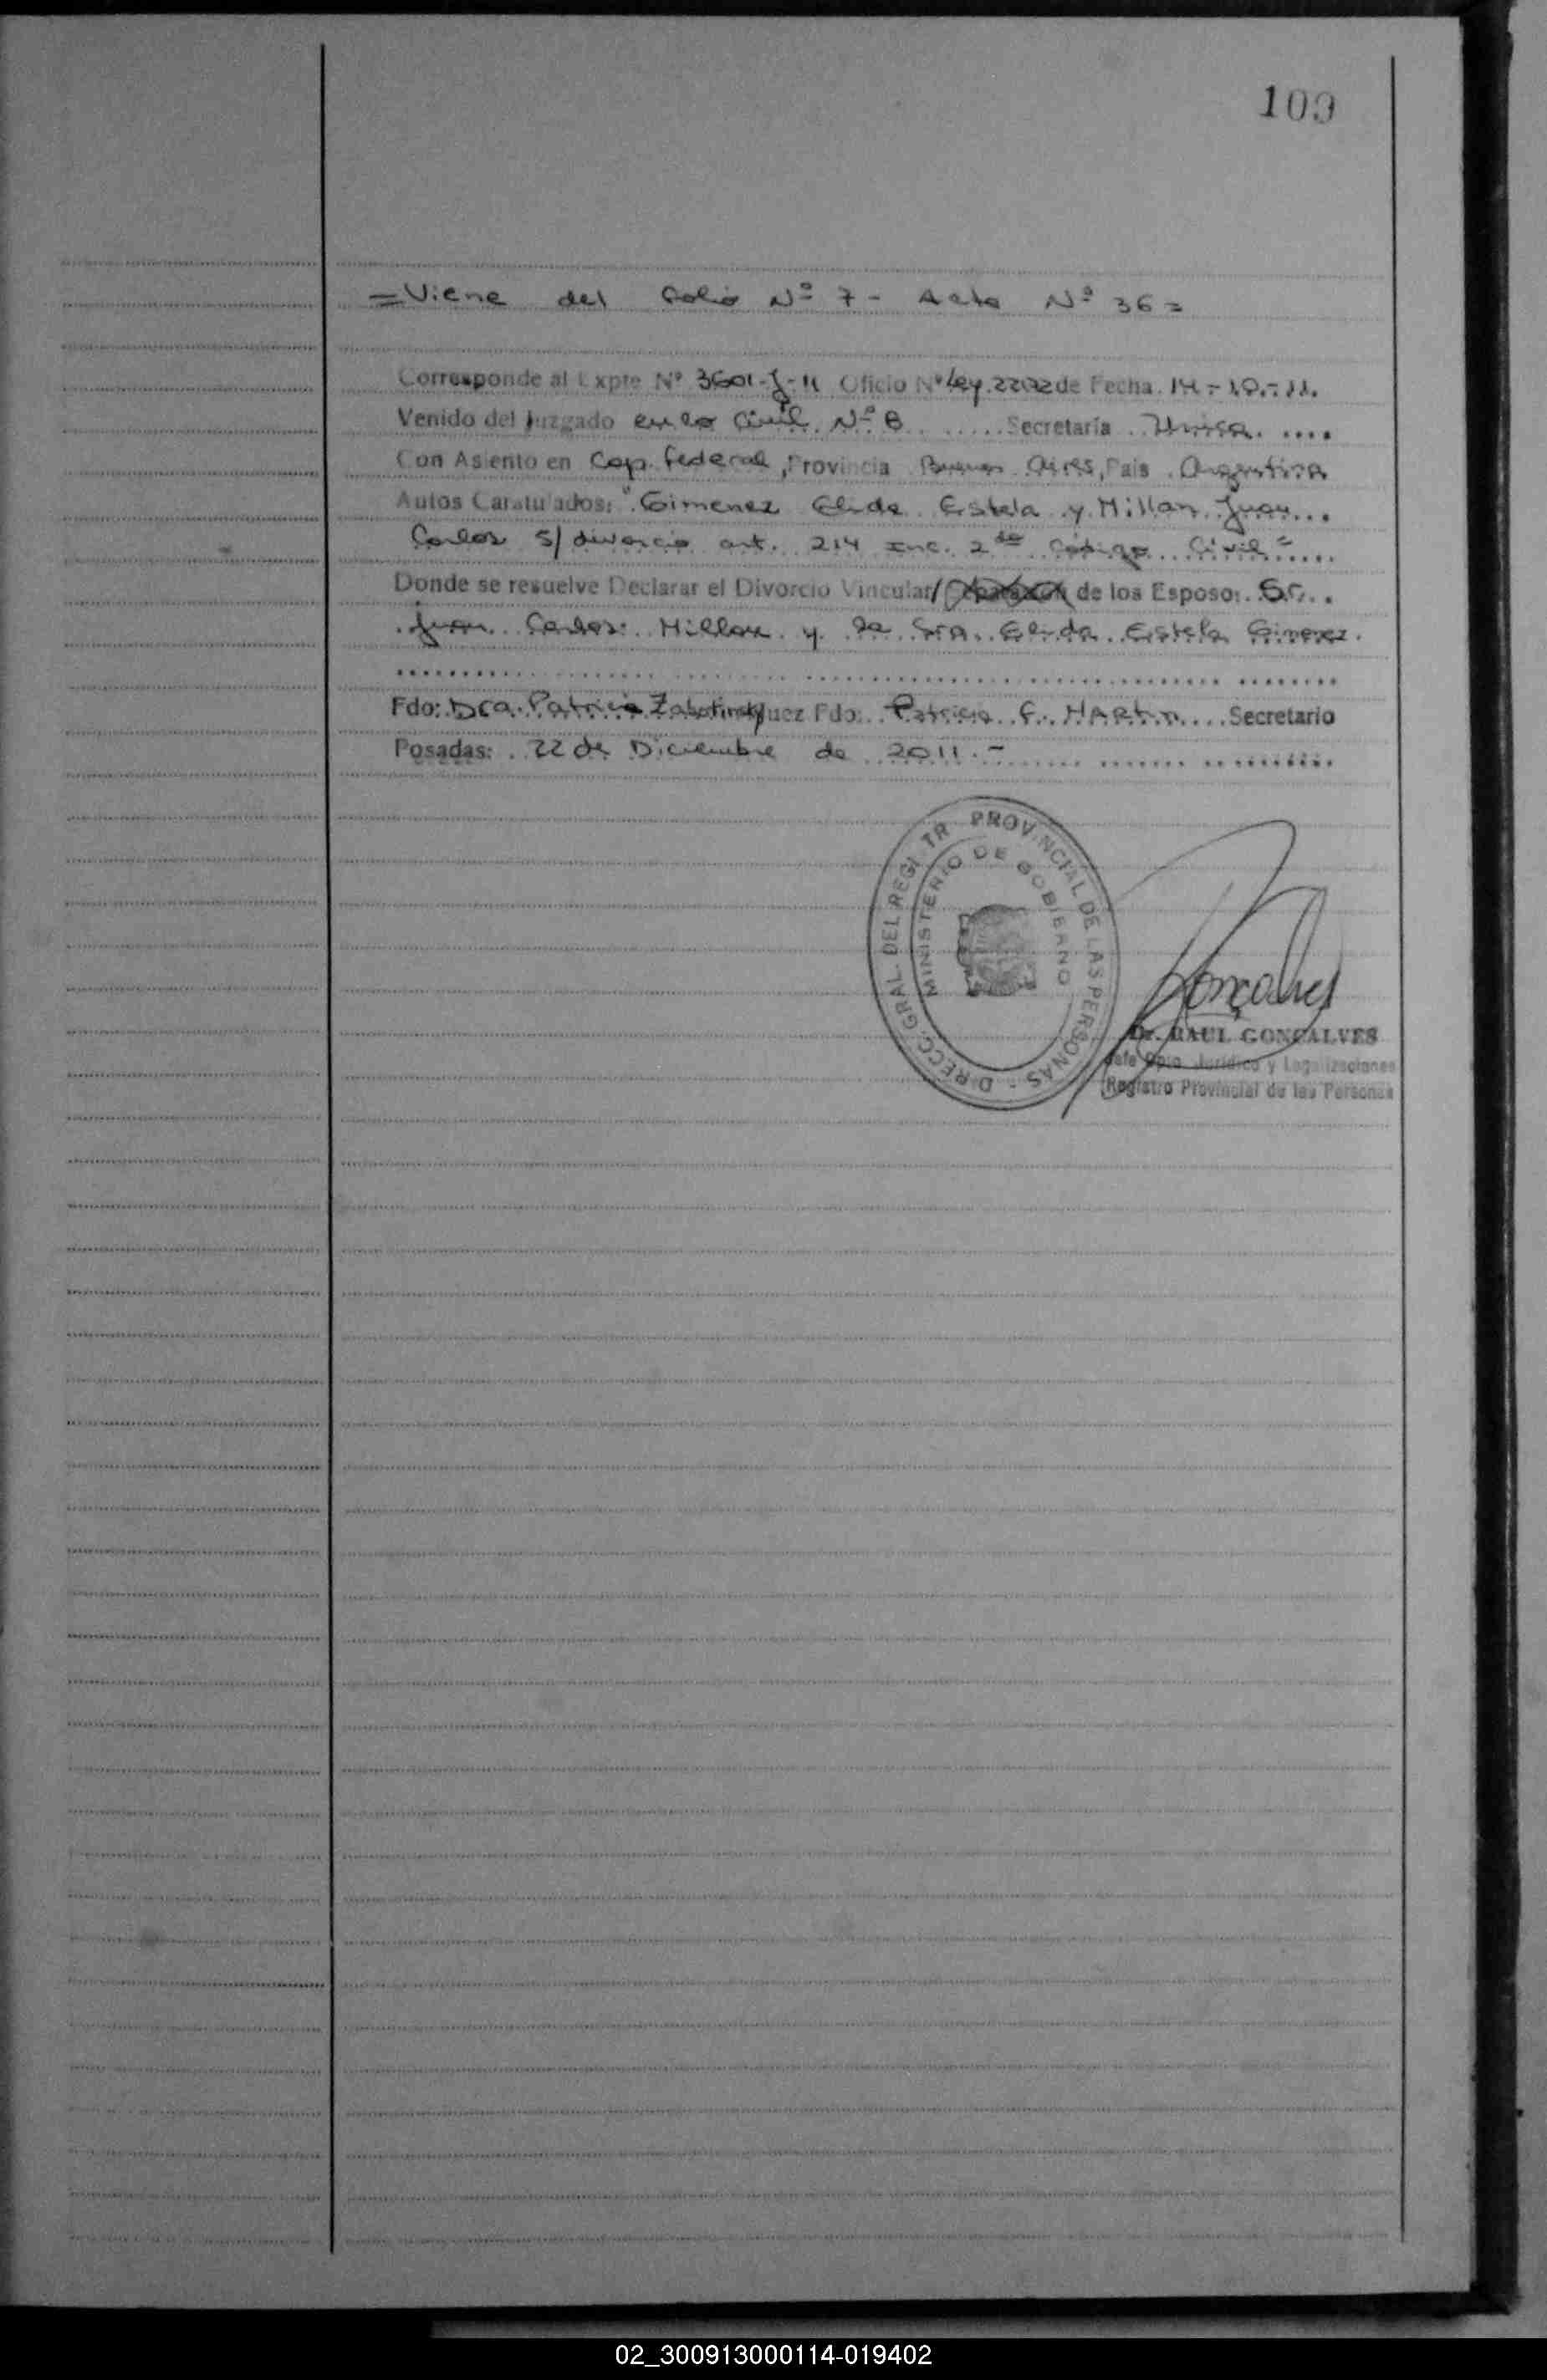 100
= Viene del Folio Nº 7 - Acta Nº 36 =
Corresponde al Expte Nº 3601-J-11 Oficio Nº Ley 22172 de Fecha 14-10-11.
Venido del Juzgado en lo Civil Nº 8 Secretaría Unica
Con Asiento en Cap. Federal, Provincia Buenos Aires, Pais Argentina
Autos Caratulados: "Gimenez Elida Estela y Millan Juan
Carlos s/ divorcio art. 214 Inc. 2do Código Civil"
Donde se resuelve Declarar el Divorcio Vincular/ de los Esposo: Sr.
Juan Carlos Millan y la Sra. Elida Estela Gimenez.
Fdo: Dra. Patricia Zabotinsky Juez Fdo: Patricia F. Martin Secretario
Posadas: 22 de Diciembre de 2011.-
DIRECC. GRAL. DEL REGISTR PROVINCIAL DE LAS PERSONAS -
MINISTERIO DE GOBIERNO
Gonçalves
Dr. RAUL GONÇALVES
Jefe Dpto. Jurídico y Legalizaciones
Registro Provincial de las Personas
02_300913000114-019402